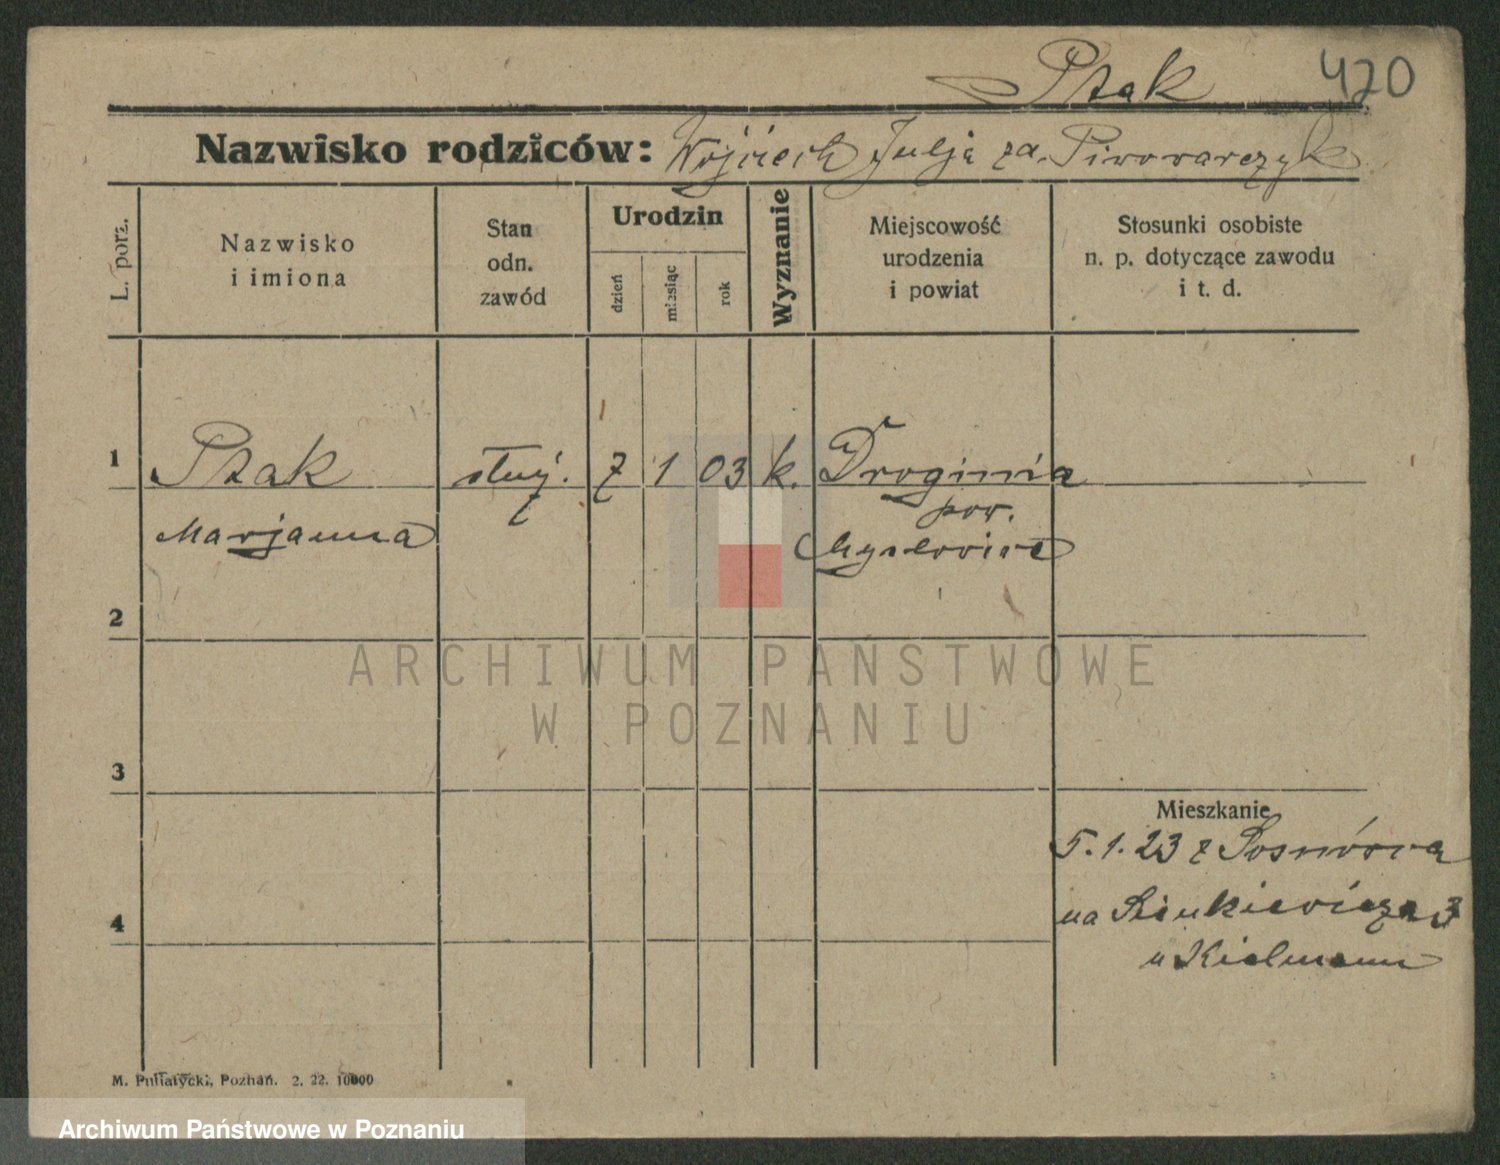 Ptak 420
Nazwisko rodziców: Wojciech Julja za. Piwowarczyk
L. porz.
Nazwisko
i imiona
Stan
odn.
zawód
Urodzin
dzień
miesiąc
rok
Wyznanie
Miejscowość
urodzenia
i powiat
Stosunki osobiste
n. p. dotyczące zawodu
i t. d.
1 Ptak służ. 7 1 03 k. Droginia
pow.
Marjanna Myslowice
2
3
Mieszkanie
5.1.23 z Sosnówca
4
na Sienkiewicza 3
u Kielmann
ARCHIWUM PAŃSTWOWE
W POZNANIU
M. Putiatycki, Poznań. 2. 22. 10000
Archiwum Państwowe w Poznaniu